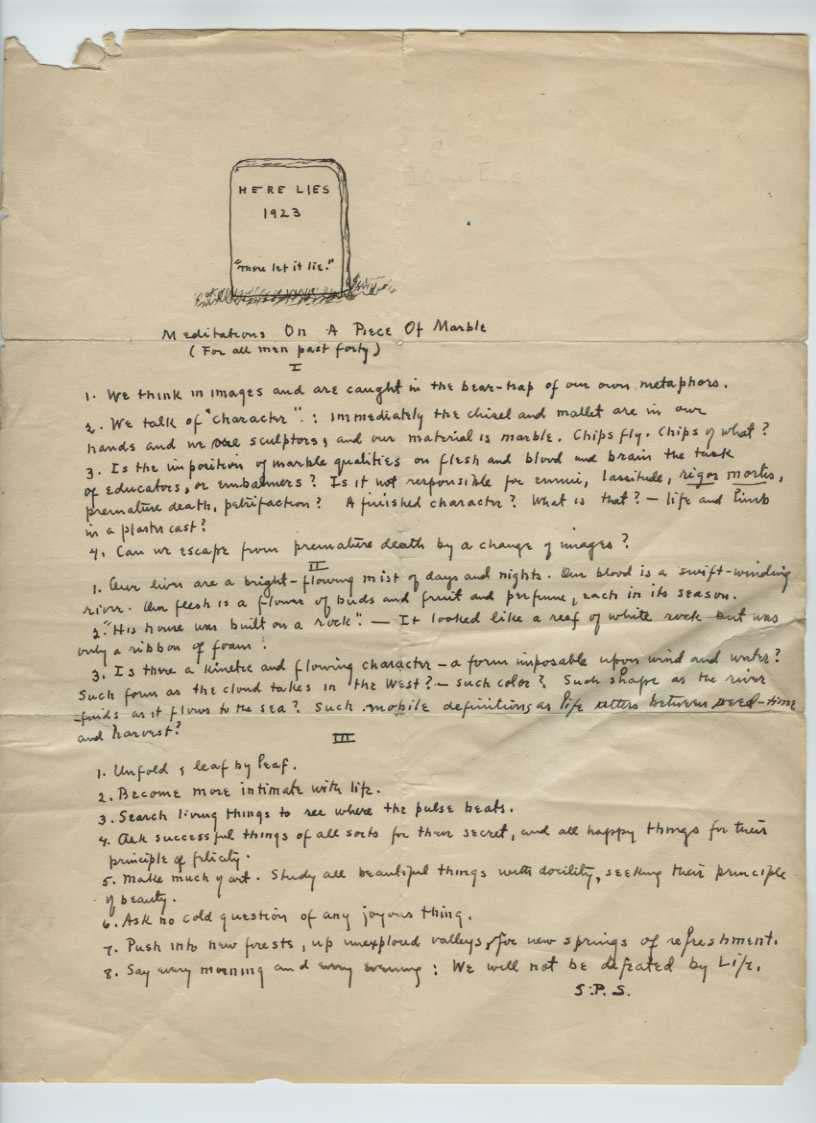 HERE LIES
1923
"There let it lie."
Meditations On A Piece Of Marble
(For all men past forty)
I
1. We think in images and are caught in the bear-trap of our own metaphors.
2. We talk of "character".: immediately the chisel and mallet are in our
hands and we are sculptors; and our material is marble. Chips fly. Chips of what?
3. Is the imposition of marble qualities on flesh and blood and brain the task
of educators, or embalmers? Is it not responsible for ennui, lassitude, rigor mortis,
premature death, petrifaction? A finished character? What is that? — life and limb
in a plaster cast?
4. Can we escape from premature death by a change of images?
II
1. Our lives are a bright-flowing mist of days and nights. Our blood is a swift-winding
river. Our flesh is a flower of buds and fruit and perfume, each in its season.
2. "His house was built on a rock". — It looked like a reef of white rock but was
only a ribbon of foam!
3. Is there a kinetic and flowing character — a form imposable upon wind and water?
Such form as the cloud takes in the West? — such color? Such shape as the river
finds as it flows to the sea? Such mobile definitions as life utters between seed-time
and harvest?
III
1. Unfold; leaf by leaf.
2. Become more intimate with life.
3. Search living things to see where the pulse beats.
4. Ask successful things of all sorts for their secret, and all happy things for their
principle of felicity.
5. Make much of art. Study all beautiful things with docility, seeking their principle
of beauty.
6. Ask no cold question of any joyous thing.
7. Push into new forests, up unexplored valleys, for new springs of refreshment.
8. Say every morning and every evening: We will not be defeated by Life.
S.P.S.